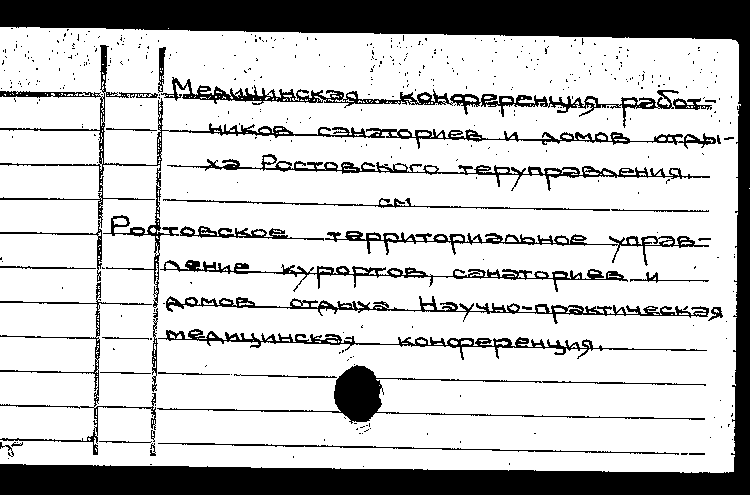 Медицинская конференция работ-
ников санаториев и домов отды-
ха Ростовского теруправления.
см
Ростовское территориальное управ-
ление курортов, санаториев и
домов отдыха. Научно-практическая
медицинская конференция.